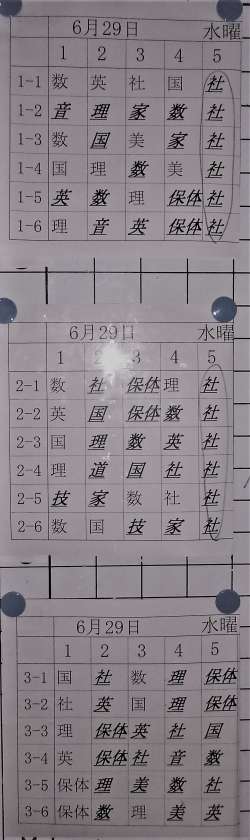 6月29日 水曜
1 2 3 4 5
1-1 数 英 社 国 社
1-2 音 理 家 数 社
1-3 数 国 美 家 社
1-4 国 理 数 美 社
1-5 英 数 理 保体 社
1-6 理 音 英 保体 社
6月29日 水曜
1 2 3 4 5
2-1 数 社 保体 理 社
2-2 英 国 保体 数 社
2-3 国 理 数 英 社
2-4 理 道 国 社 社
2-5 技 家 数 社 社
2-6 数 国 技 家 社
6月29日 水曜
1 2 3 4 5
3-1 国 社 数 理 保体
3-2 社 英 国 理 保体
3-3 理 保体 英 社 国
3-4 英 保体 社 音 数
3-5 保体 理 美 数 社
3-6 保体 数 理 美 英